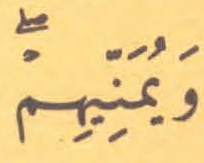 وَيُمَنِّيهِمْۖ